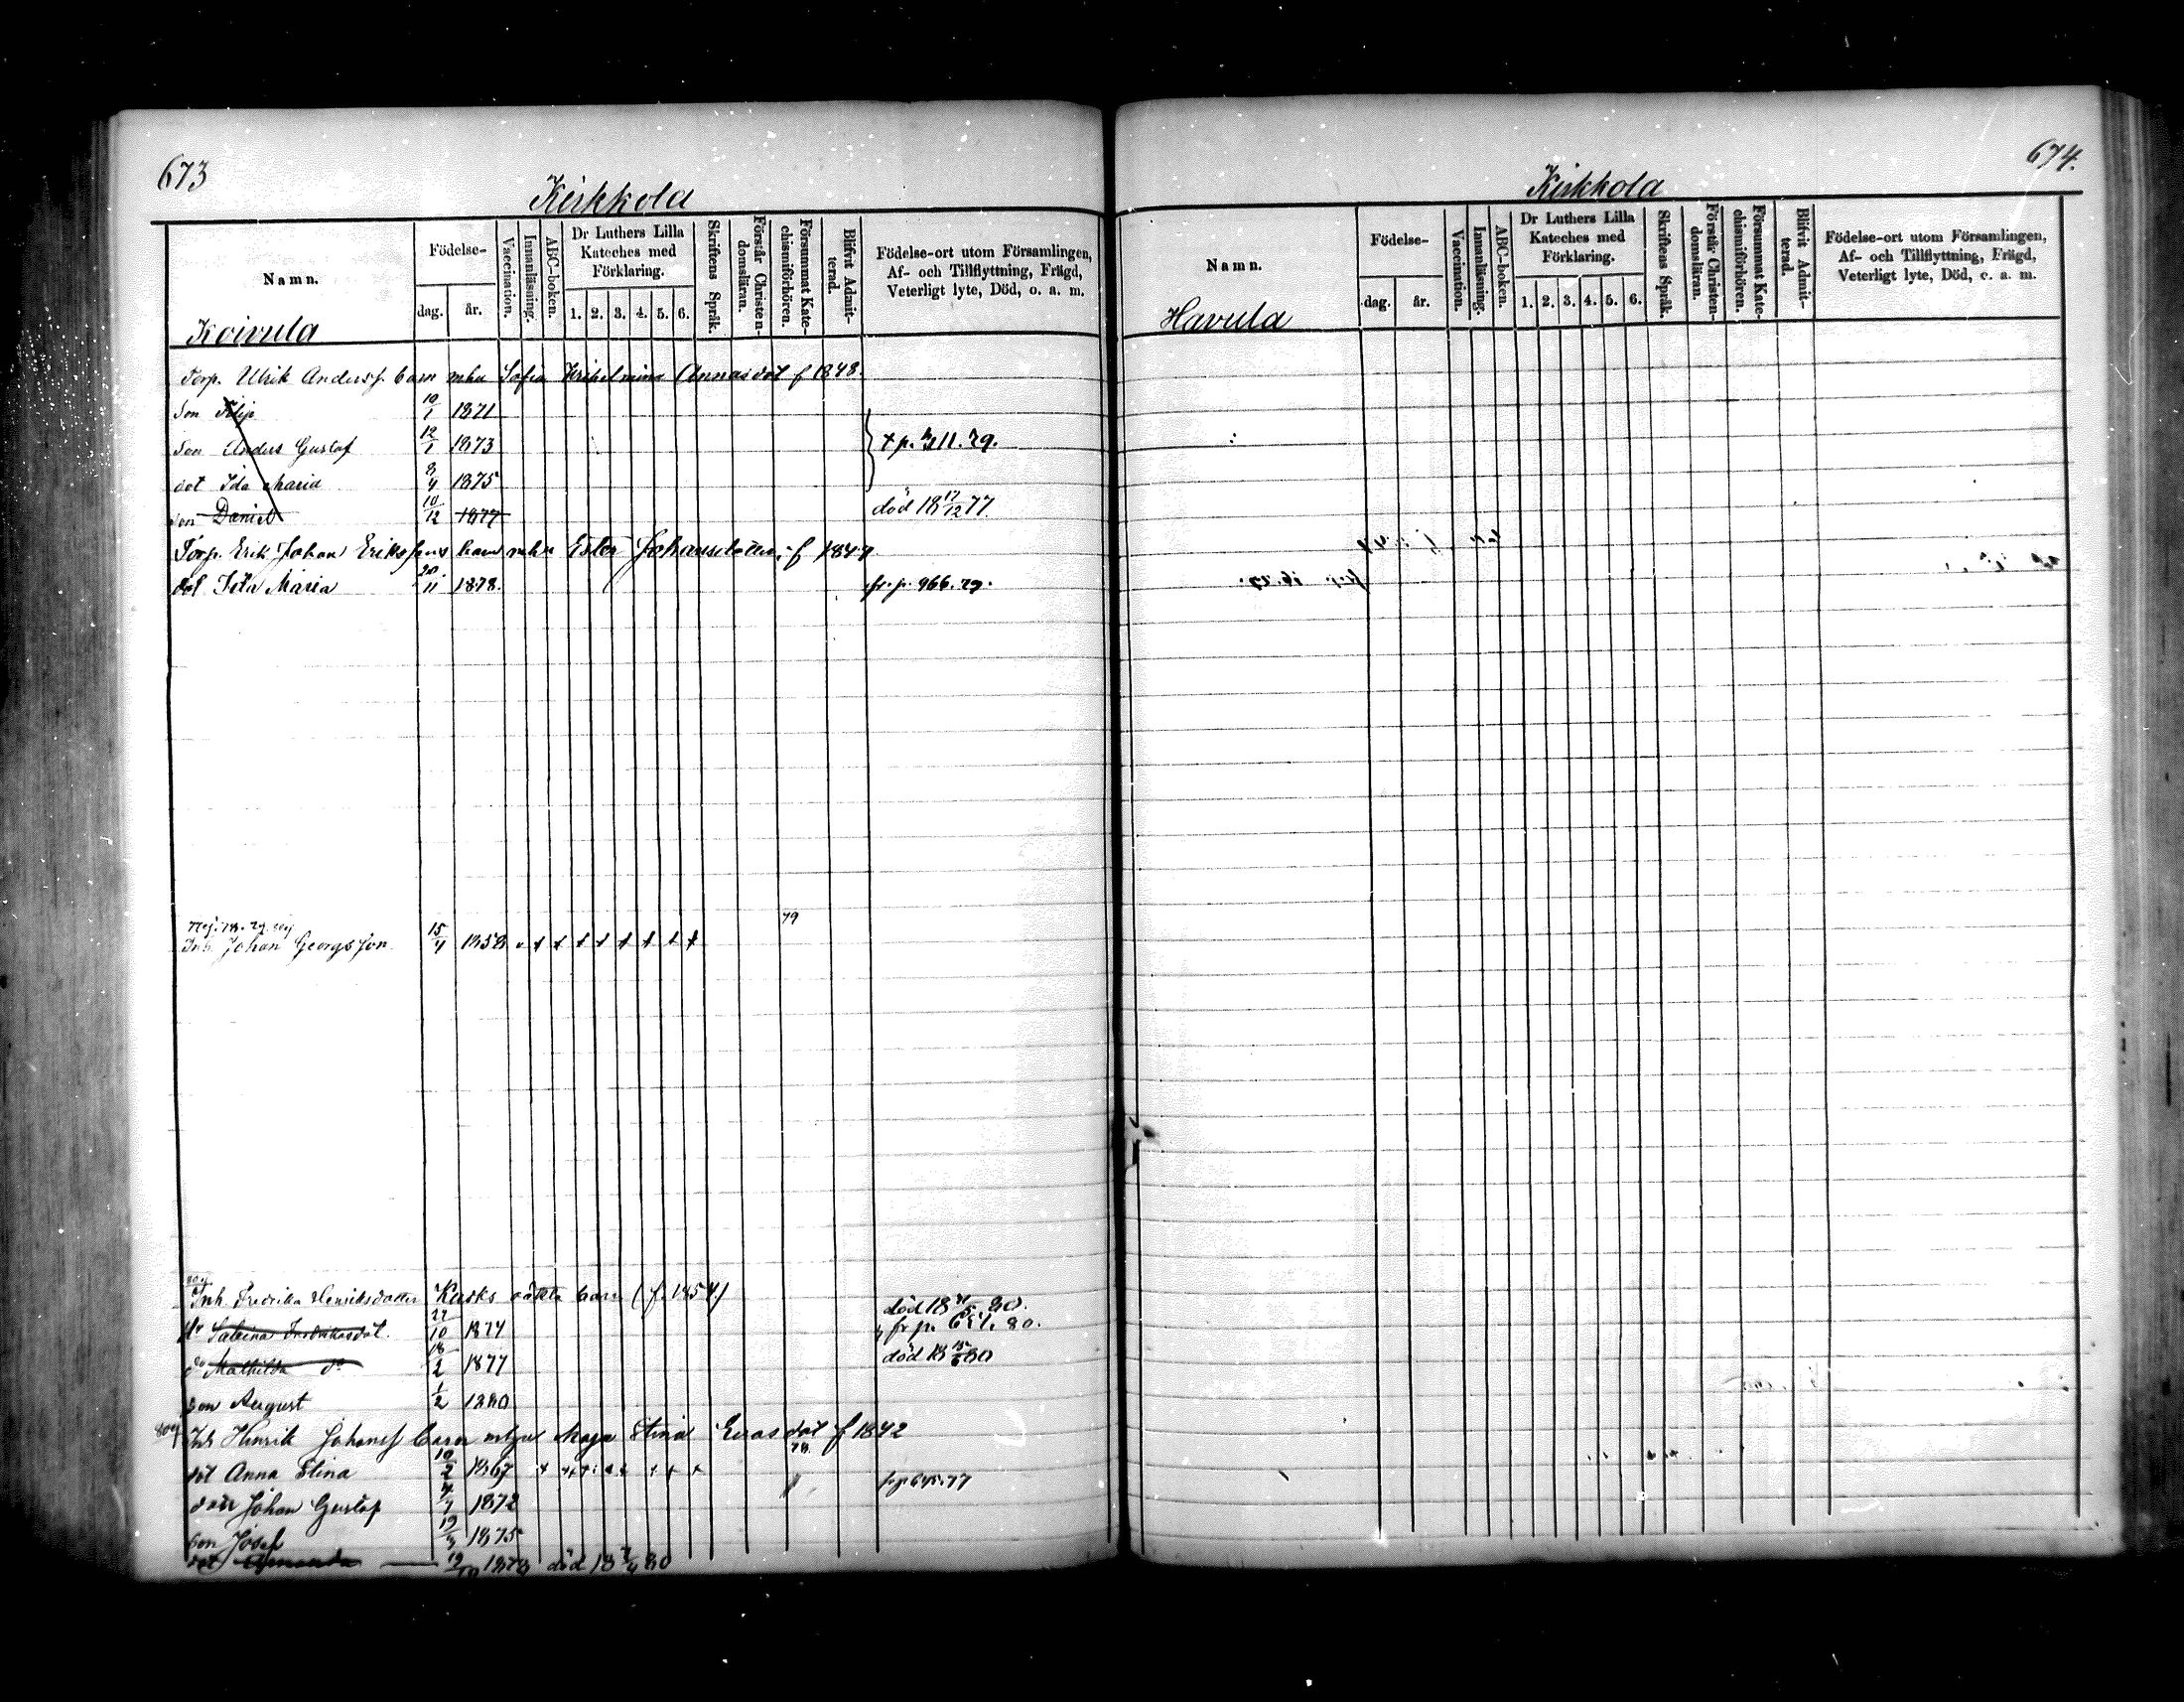 673
Kirkkola
Namn.
Födelse-
dag.
år.
Vaccination.
Innanläsning.
ABC-boken.
Dr Luthers Lilla
Kateches med
Förklaring.
1. 2. 3. 4. 5. 6.
Skriftens Språk.
Förstår Christen-
domsläran.
Försummat Kate-
chismiförhören.
Blifvit Admit-
terad.
Födelse-ort utom Församlingen,
Af- och Tillflyttning, Frägd,
Veterligt lyte, Död, o. a. m.
Koivula
Torp. Ulrik Anderss. barn mhu Sofia Wilhelmina Annasdot f 1848.
Son Filip 10/1 1871
Son Anders Gustaf 12/1 1873 11.79.
dot Ida Maria 8/4 1875
son Daniel 10/12 1877 död 18 17/12 77.
Torp. Erik Johan Erikssons barn mhu Ester Johansdotter f 1847
dot Ida Maria 20/11 1878. fr. p. 966.79.
79
Inh. Johan Georgsson 15/4 1858 x x x x x x x x
Inh. Fredrika Henriksdotter Kasks oäkta barn (f. 1854)
Sabina Fredrikasdot. 22/10 1874 död 18 80.
fr p. 80.
Mathilda do 18/2 1877 död 18 80
son August 1/2 1880
Inh Hinrik Johanss barn mhu Maja Stina Evasdot f 1842
78
dot Anna Stina 10/2 1867 x x x x
son Johan Gustaf 1872 77
son Josef 19 1875
dot Amanda 12/10 1878 död 18 80
674.
Kirkkola
Namn.
Födelse-
dag.
år.
Vaccination.
Innanläsning.
ABC-boken.
Dr Luthers Lilla
Kateches med
Förklaring.
1. 2. 3. 4. 5. 6.
Skriftens Språk.
Förstår Christen-
domsläran.
Försummat Kate-
chismiförhören.
Blifvit Admit-
terad.
Födelse-ort utom Församlingen,
Af- och Tillflyttning, Frägd,
Veterligt lyte, Död, c. a. m.
Havula